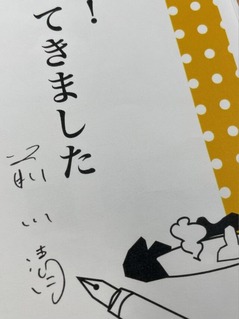 ！
てきました
前川清